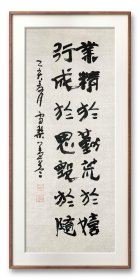 業精於勤荒於嬉
行成於思毀於隨
乙亥